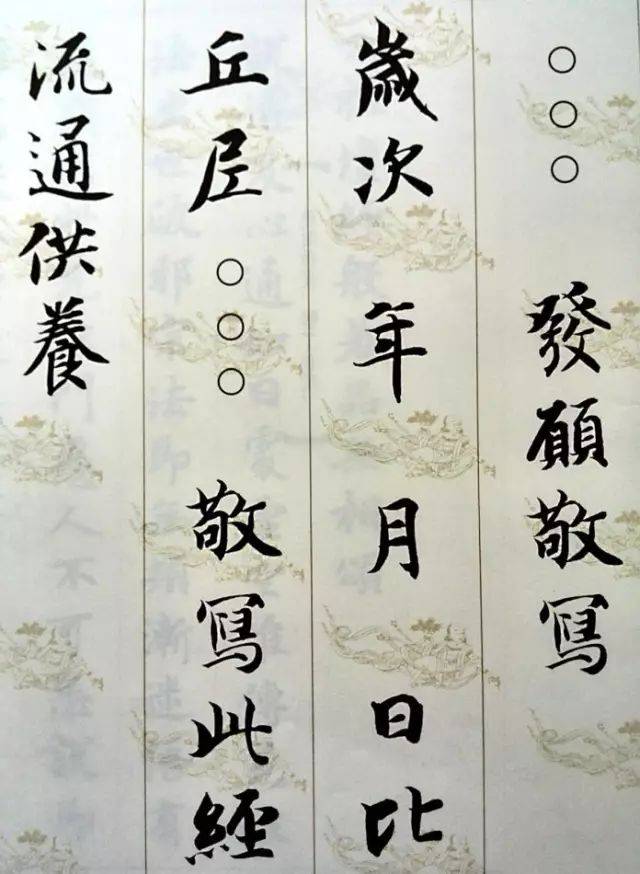 ○○○ 發願敬冩
歲次 年 月 日比
丘尼 ○○○ 敬冩此經
流通供養